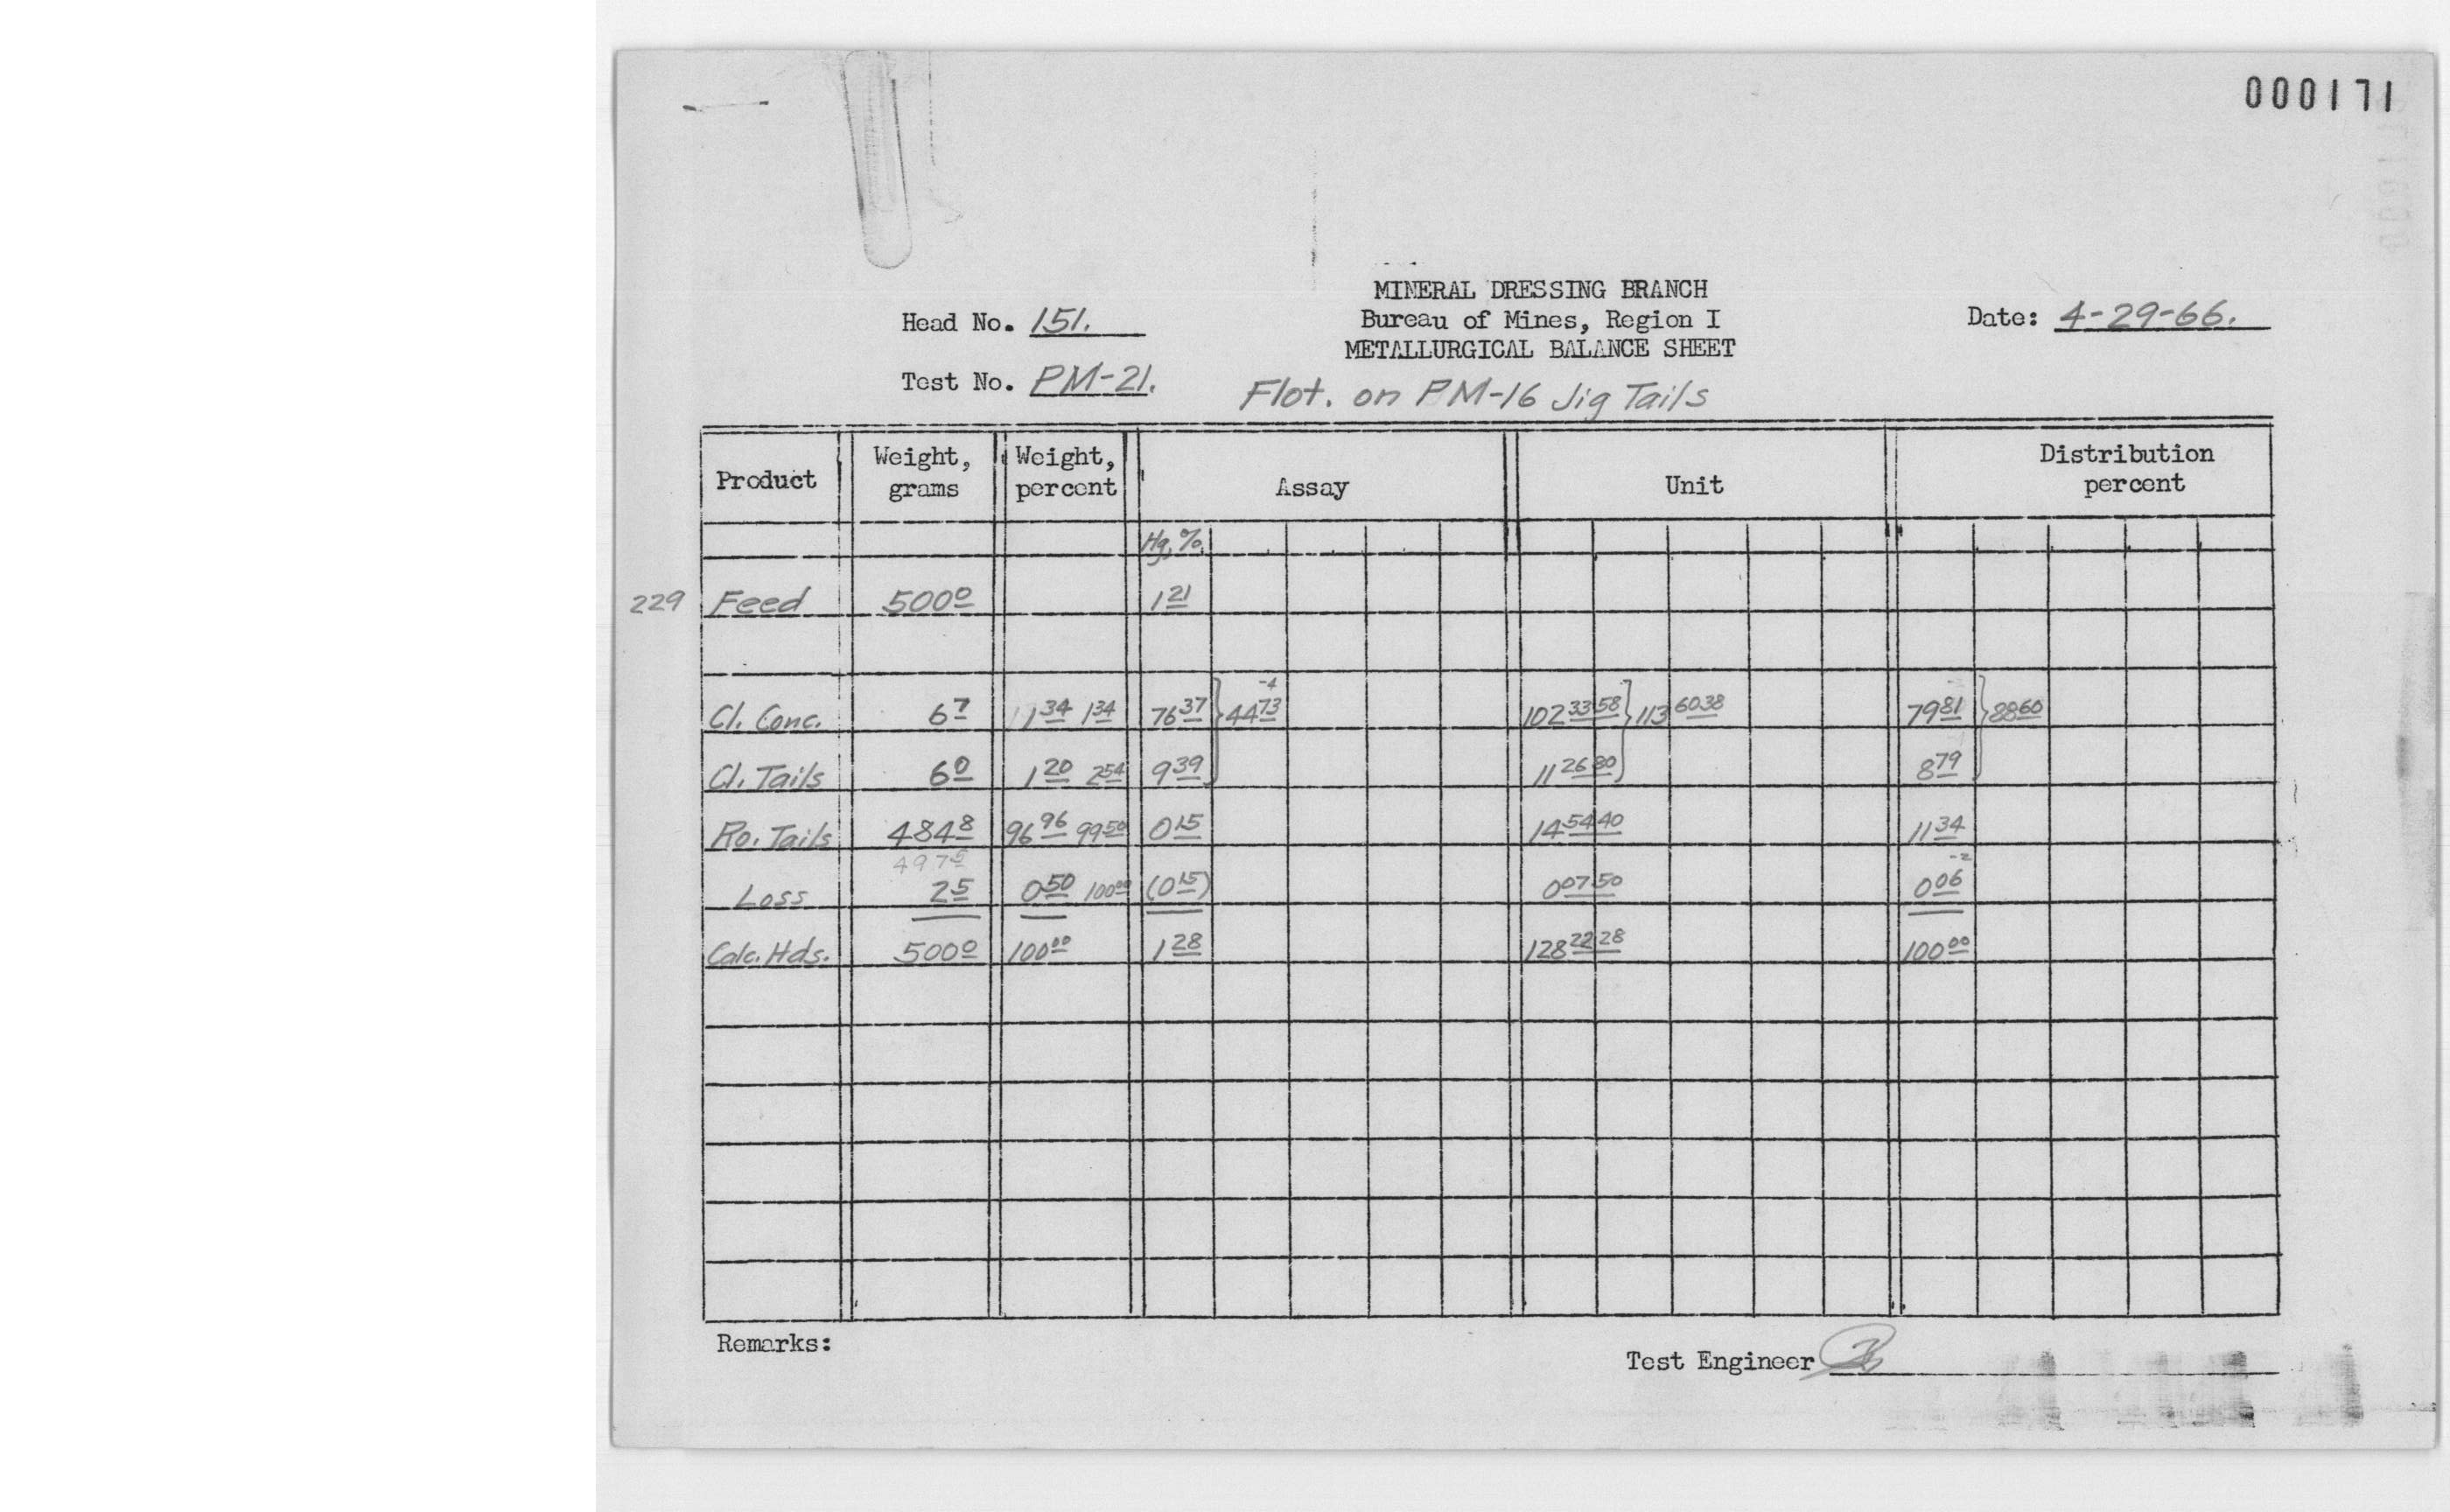 000171
MINERAL DRESSING BRANCH
Head No. 151. Bureau of Mines, Region I Date: 4-29-66.
METALLURGICAL BALANCE SHEET
Test No. PM-21. Flot. on PM-16 Jig Tails
Product Weight, grams Weight, percent Assay Unit Distribution percent
Hg, %
229 Feed 500.0 1.21
-4
Cl. Conc. 6.7 1.34 1.34 76.37 } 44.73 102.3358 } 113.6038 79.81 } 88.60
Cl. Tails 6.0 1.20 2.54 9.39 11.2680 8.79
Ro. Tails 484.8 96.96 99.50 0.15 14.5440 11.34
497.5 -2
Loss 2.5 0.50 100.00 (0.15) 0.0750 0.06
Calc. Hds. 500.0 100.00 1.28 128.2228 100.00
Remarks:
Test Engineer